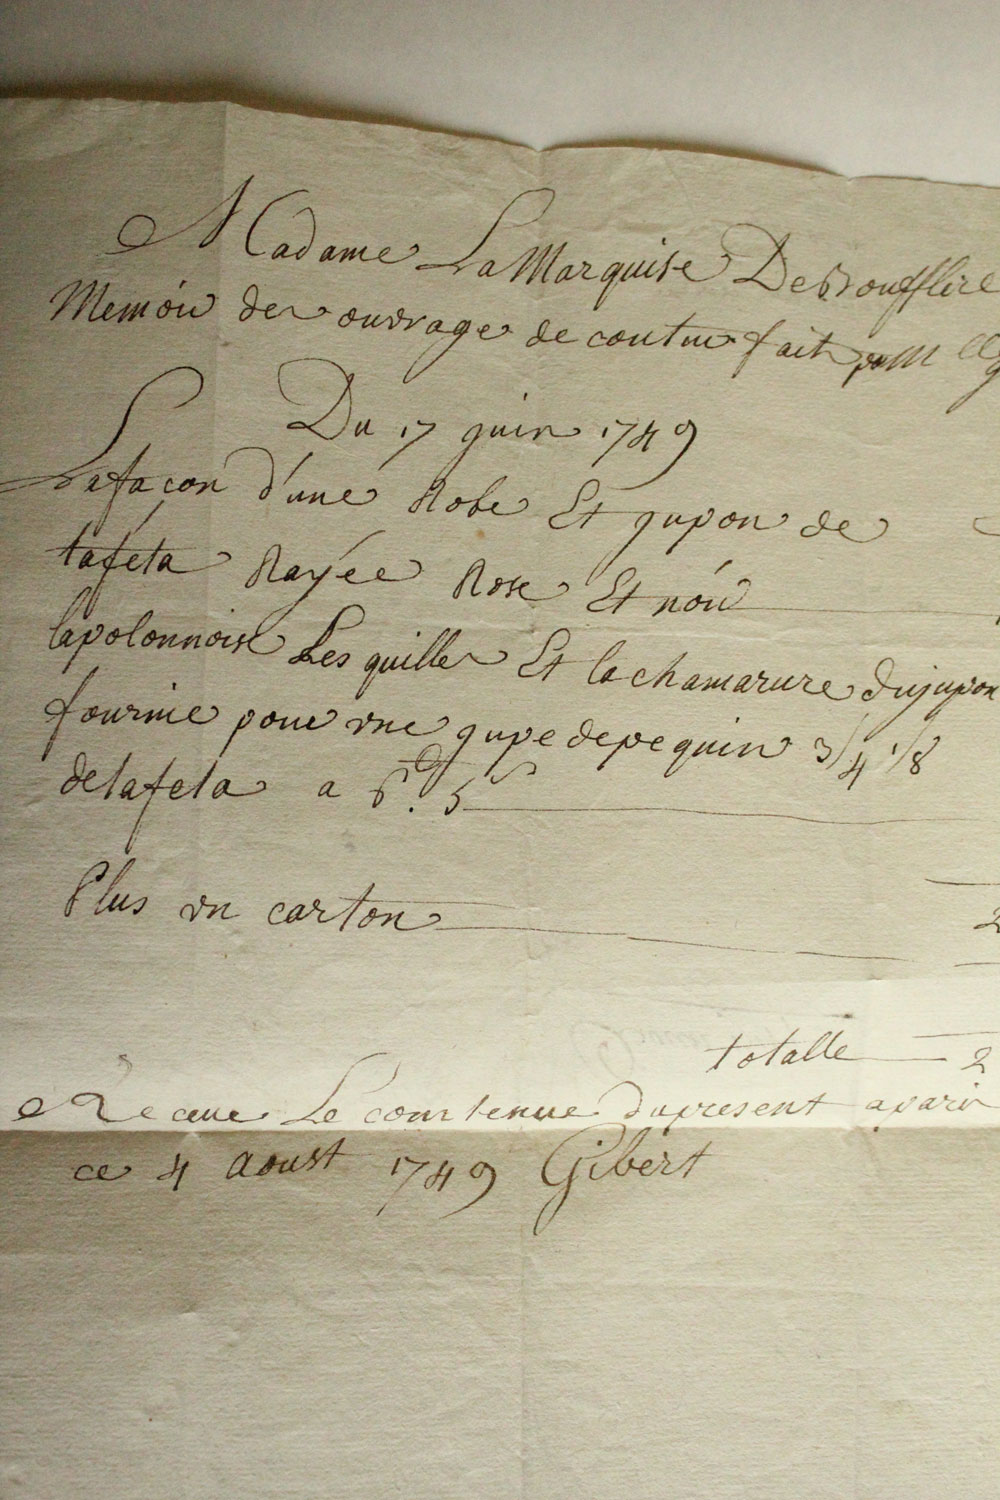 Madame La Marquise De Boufflere
Memoir des ouvrage de coutur fait par Mlle
Du 17 juin 1749
La facon d'une Robe Et jupon de
tafeta Rayée Rose Et noir
lapolonnoise Les quilles Et la chamarure dujupon
fournie pour une jupe depequin 3/4 1/8
detafeta a 6tt. 5s
Plus un carton 2
totalle 2
Receue Le contenue dupresent aparis
ce 4 Aoust 1749 Gibert